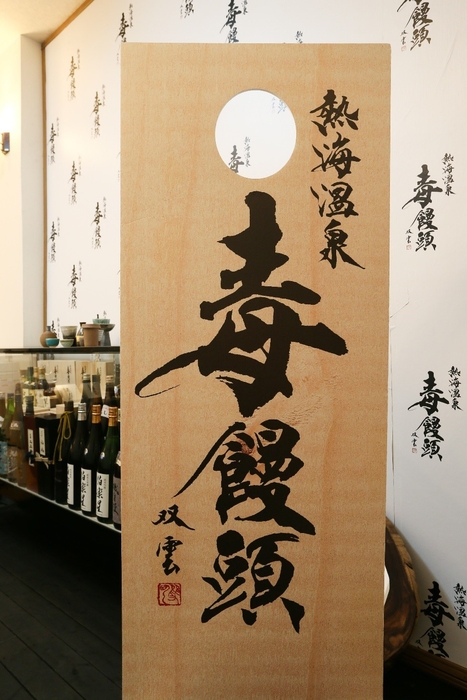 熱海温泉
毒饅頭
双雲
熱海温泉
毒饅頭
双雲
熱海温泉
毒饅頭
双雲
熱海温泉
毒饅頭